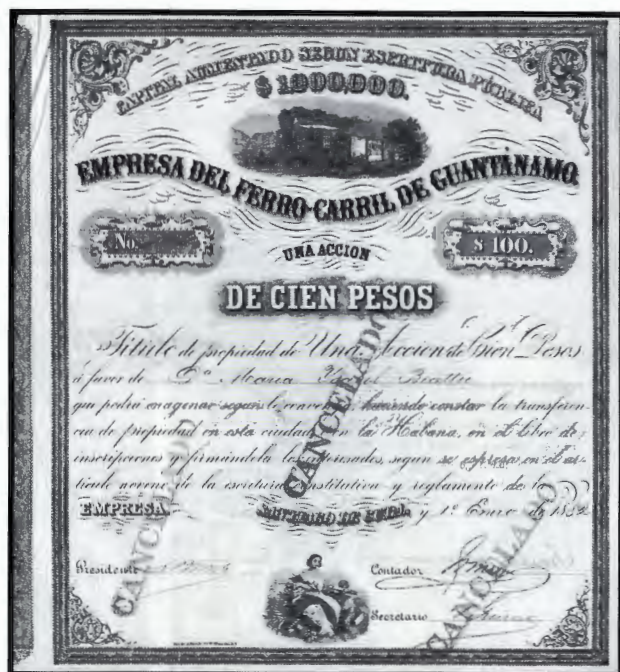 CAPITAL AUMENTADO SEGUN ESCRITURA PÚBLICA
$ 1.000.000.
EMPRESA DEL FERRO-CARRIL DE GUANTÁNAMO
No. $ 100.
UNA ACCION
DE CIEN PESOS
Titulo de propiedad de Una Accion de Cien Pesos
á favor de Dª Maria
que podrá enagenar segun le convenga haciendo constar la transferen-
cia de propiedad en esta ciudad ó en la Habana, en el libro de
inscripciones y firmándola los interesados, segun se espresa en el ar-
ticulo noveno de la escritura constitutiva y reglamento de la
EMPRESA. SANTIAGO DE CUBA, y 1º Enero de
CANCELADO
CANCELADO
CANCELADO
Presidente Contador
Secretario